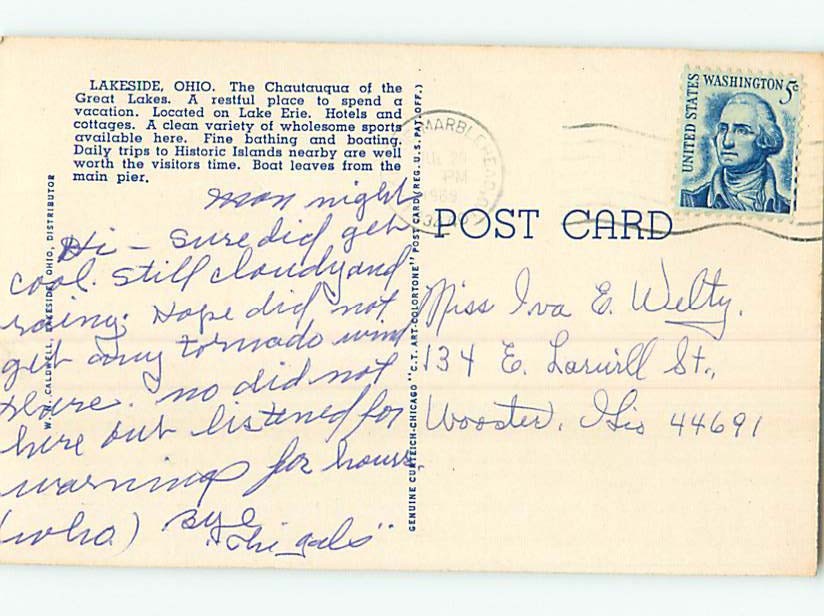 LAKESIDE, OHIO. The Chautauqua of the
Great Lakes. A restful place to spend a
vacation. Located on Lake Erie. Hotels and
cottages. A clean variety of wholesome sports
available here. Fine bathing and boating.
Daily trips to Historic Islands nearby are well
worth the visitors time. Boat leaves from the
main pier.
Mon night
Hi - sure did get
cool. Still cloudy and
rainy. Hope did not
get any tornado wind
there. no did not
here but listened for
warnings for hours.
(who) Bye
"The gals"
W. M. CALDWELL, LAKESIDE, OHIO, DISTRIBUTOR
GENUINE CURTEICH-CHICAGO "C.T. ART-COLORTONE" POST CARD (REG. U.S. PAT. OFF.)
MARBLEHEAD, O
PM
1969
POST CARD
UNITED STATES WASHINGTON 5c
Miss Iva E. Welty.
134 E. Larwill St.,
Wooster, Ohio 44691